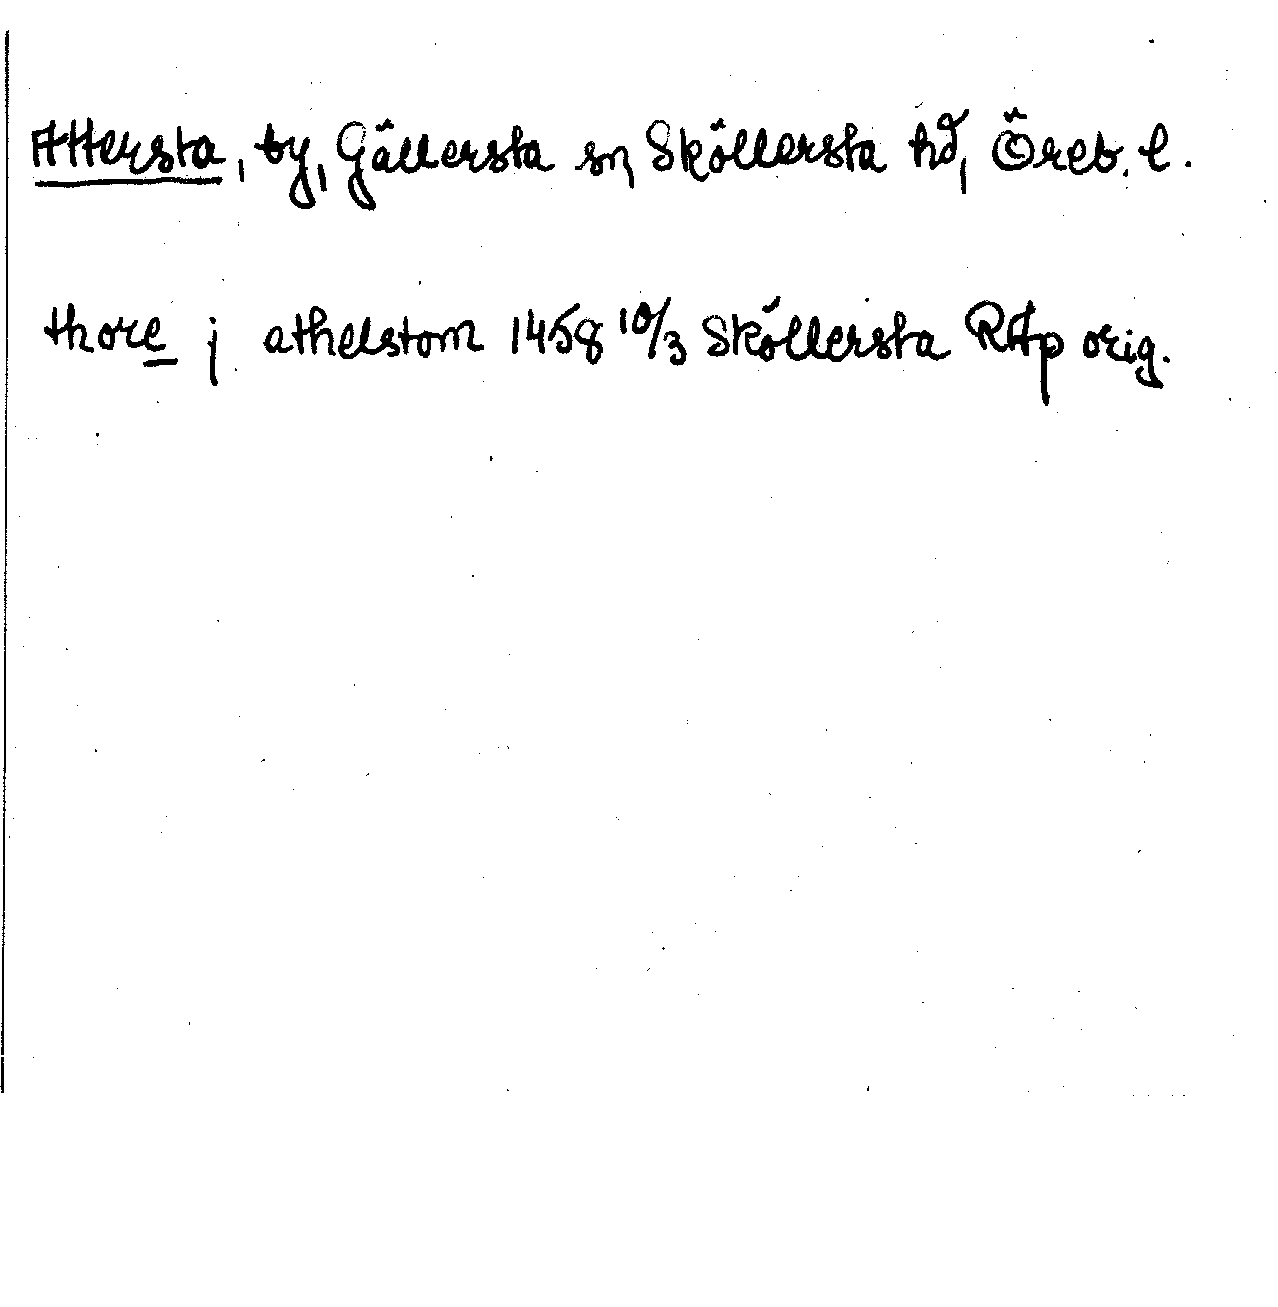 Attersta, by, Gällersta sn, Sköllersta hd, Öreb. l.
thore j athelstom 1458 10/3 Sköllersta RAp orig.